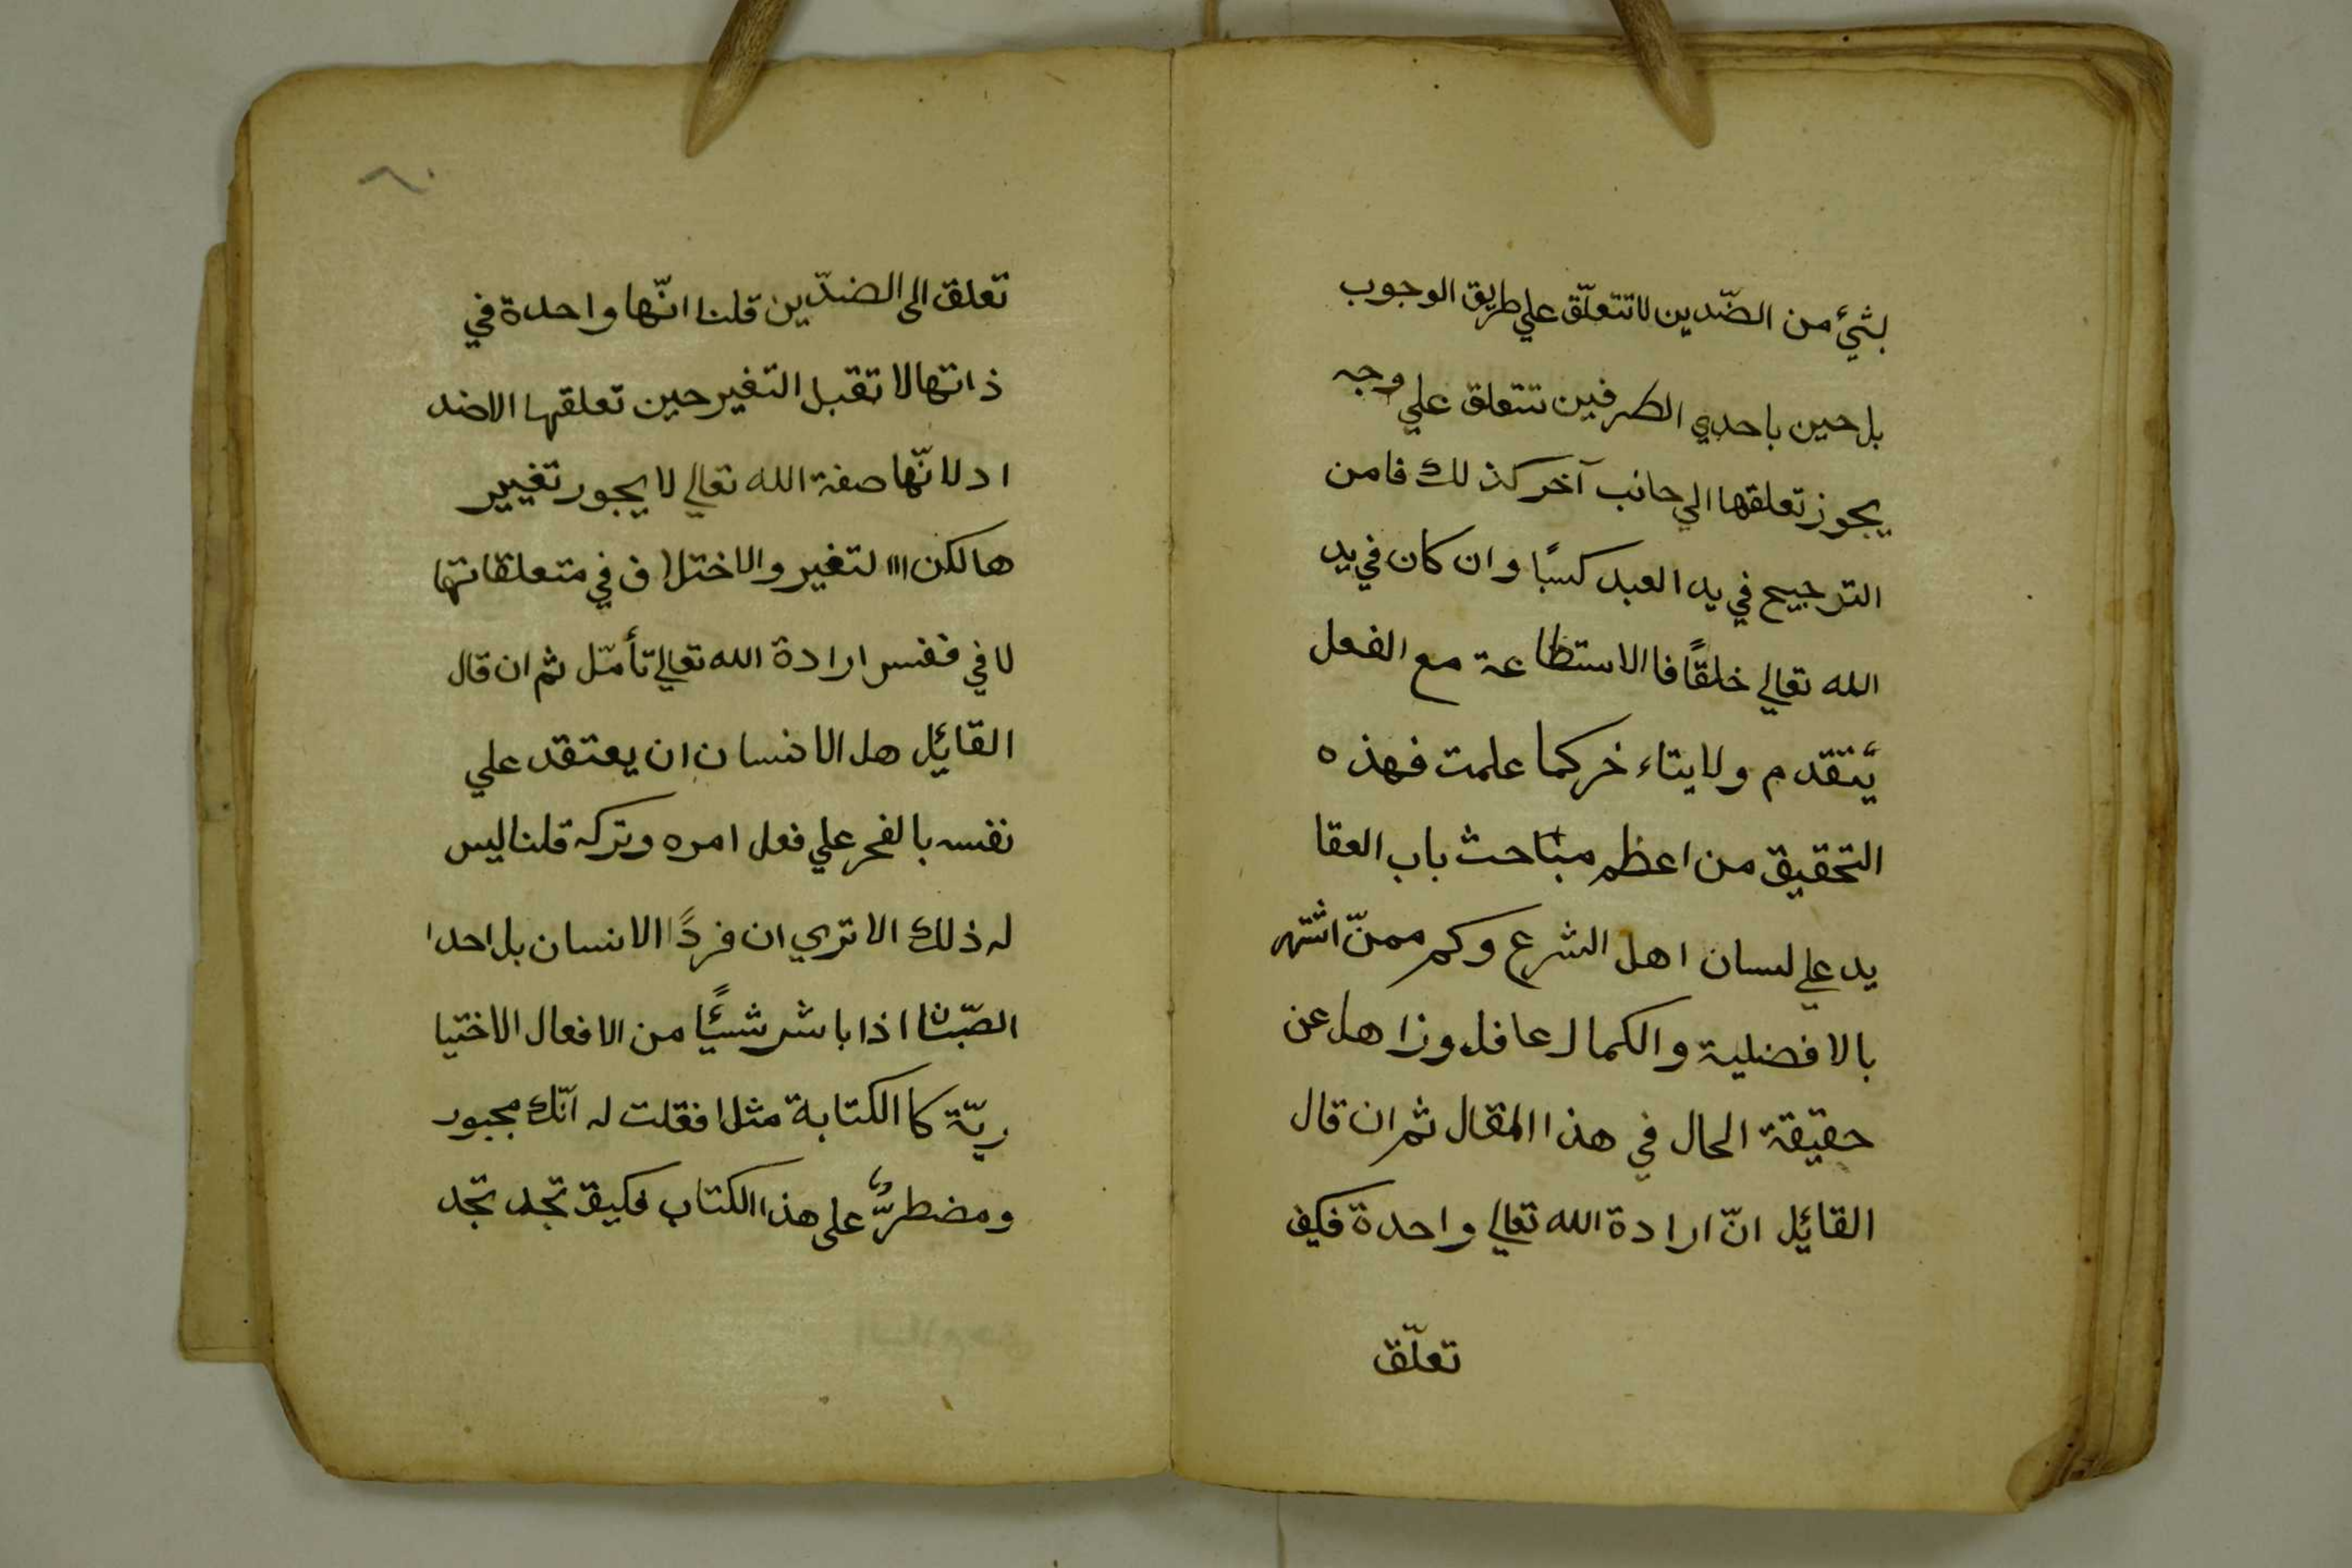 بشئ من الضّدين لا تتعلّق علي طريق الوجوب
بل حين باحدي الطرفين تتعلق علي وجه
يجوز تعلقها الي جانب آخر كذلك فامن
الترجيح في يد العبد كسبًا وان كان في يد
الله تعالي خلقًا فا الاستطاعة مع الفعل
يتقدم ولا يتاءخر كما علمت فهذه
التحقيق من اعظم مباحث باب العقا
يد علي لسان اهل الشرع وكم ممنّ اشتهر
بالافضلية والكمال عافل وزاهل عن
حقيقة الحال في هذا المقال ثم ان قال
القائل انّ ارادة الله تعالي واحدة فكيف
تعلّق
٦٠
تعلق الى الضدّين قلنا انّها واحدة في
ذاتها لا تقبل التغير حين تعلقها الاضد
اد لانّها صفة الله تعالي لا يجور تغيير
ها لكن التغير والاختلاف في متعلقاتها
لا في نفس ارادة الله تعالي تأمّل ثم ان قال
القائل هل الانسان ان يعتقد علي
نفسه بالفحر علي فعل امره وتركه قلنا ليس
له ذلك الا تري ان فردًا الانسان بل احدا
اذا باشر شيئًا من الافعال الاختيا
ريّة كا الكتابة مثلا فقلت له انّك مجبور
ومضطرّ على هذا الكتاب فكيف تجد تجد